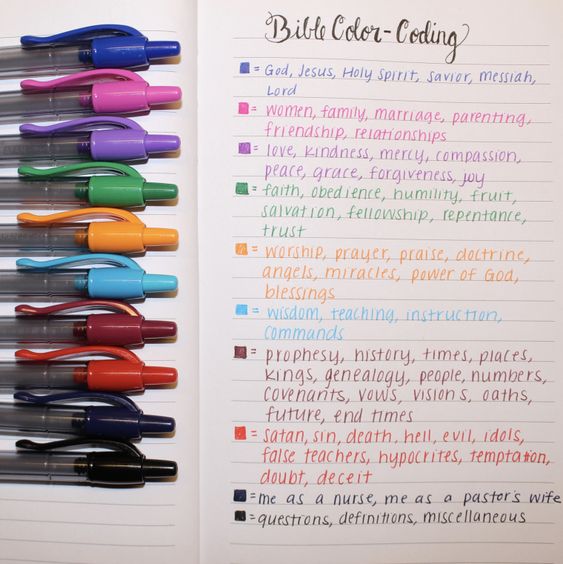 Bible Color-Coding
= God, Jesus, Holy Spirit, savior, messiah,
Lord
= women, family, marriage, parenting,
friendship, relationships
= love, kindness, mercy, compassion,
peace, grace, forgiveness, joy
= faith, obedience, humility, fruit,
salvation, fellowship, repentance,
trust
= worship, prayer, praise, doctrine,
angels, miracles, power of God,
blessings
= wisdom, teaching, instruction,
commands
= prophesy, history, times, places,
kings, genealogy, people, numbers,
covenants, vows, visions, oaths,
future, end times
= satan, sin, death, hell, evil, idols,
false teachers, hypocrites, temptation,
doubt, deceit
= me as a nurse, me as a pastor's wife
= questions, definitions, miscellaneous